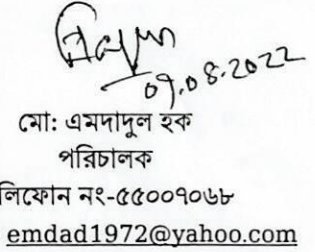 ০৭.০৪.2022
মো: এমদাদুল হক
পরিচালক
লিফোন নং-৫৫০০৭০৬৮
emdad1972@yahoo.com